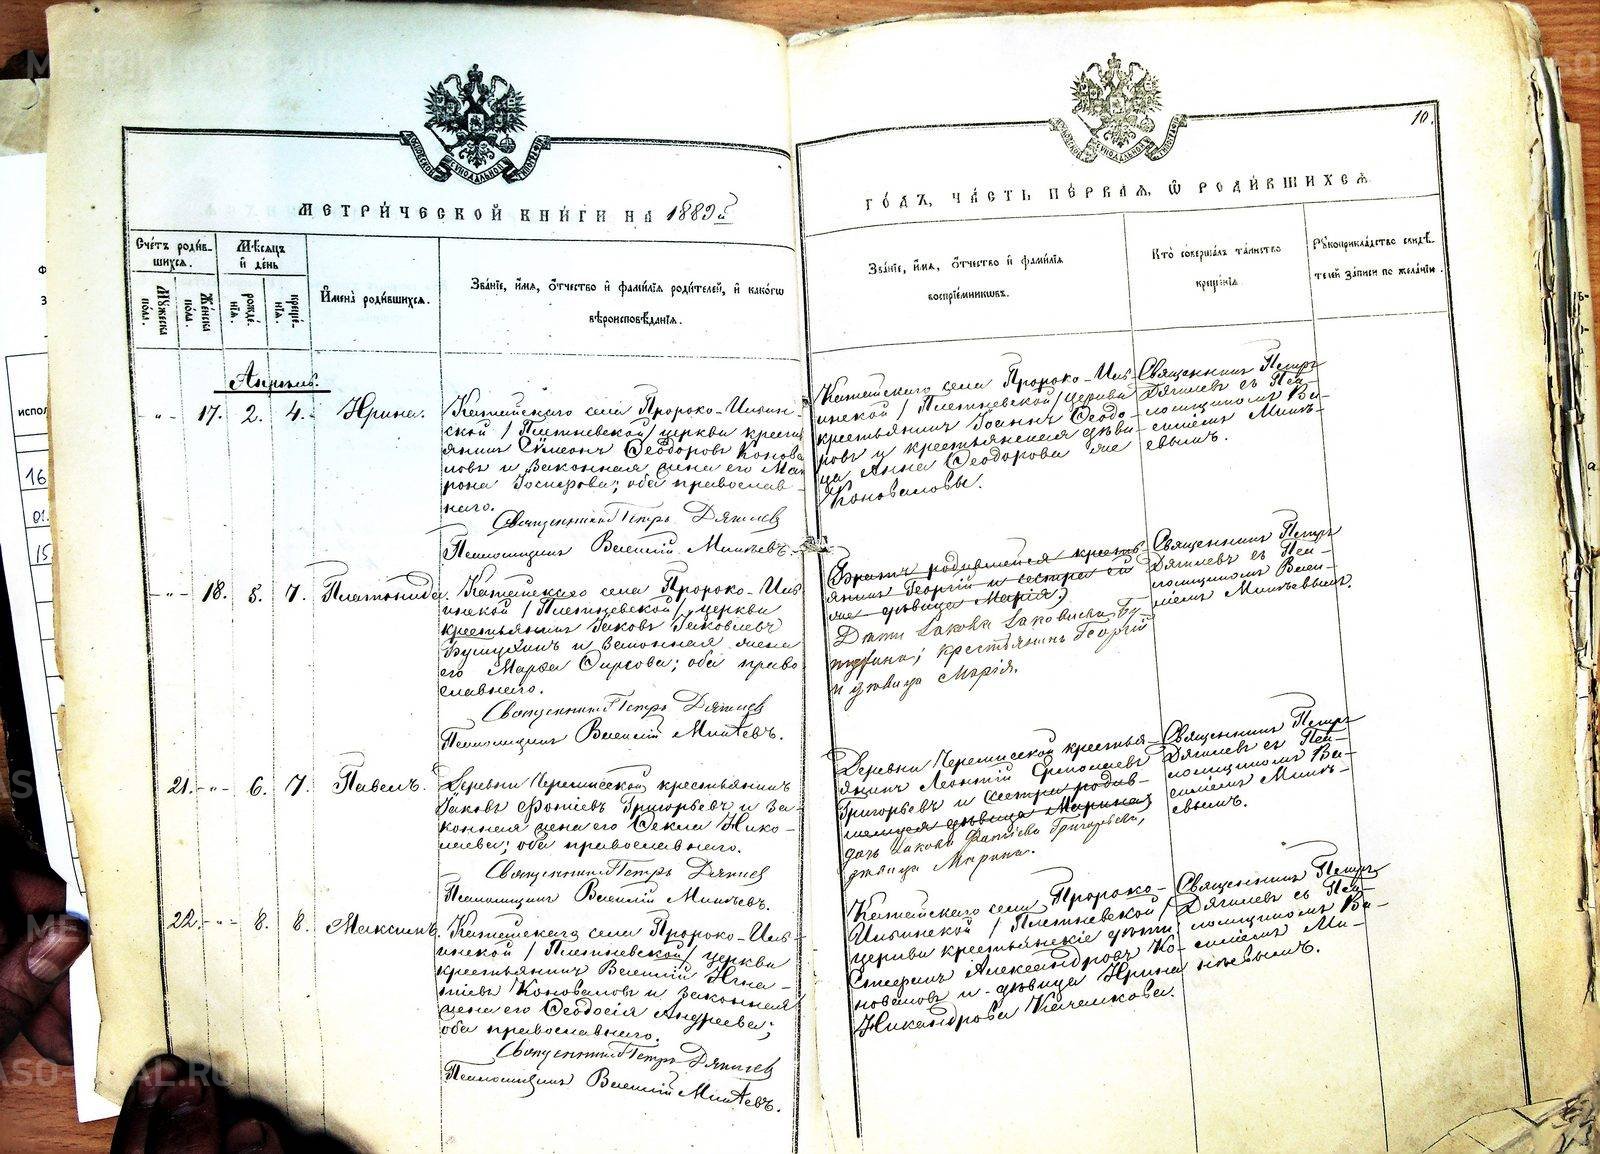 МЕТРИ́ЧЕСКОЙ КНИ́ГИ НА 1889й
ГО́ДЪ, ЧА́СТЬ ПЕ́РВАЯ, Ѿ РОДИ́ВШИХСЯ
10.
МОСКОВСКОЙ СѴНОДАЛЬНОЙ ТИПОГРАФІИ
МОСКОВСКОЙ СѴНОДАЛЬНОЙ ТИПОГРАФІИ
Сче́тъ роди́в-
шихся.
Мѣсяцъ
и де́нь
Мꙋжеска
пола.
Же́нска
по́ла.
рожде́-
нїя.
креще́-
нїя.
Имена̀ роди́вшихся.
Зва́нїе, и́мя, о́тчество и фами́лїя роди́телей, и како́гѡ
вѣроисповѣ́данїя.
Зва́нїе, и́мя, о́тчество и фами́лїя
воспрїе́мникѡвъ.
Кто̀ соверша́лъ та́инство
креще́нїя.
Рꙋкоприкла́дство свидѣ́-
телей за́писи по жела́нїю.
Апрѣль.
-"- 17. 2. 4. Ирина.
Катайскаго села Пророко-Ильин-
ской /Плетневской/ церкви кресть-
янинъ Сѵмеонъ Ѳеодоровъ Конова-
ловъ и законная жена его Мат-
рона Іосифова; оба православ-
наго.
Священникъ Петръ Дягилев
Псаломщикъ Василій Минѣевъ.
Катайскаго села Пророко-Иль-
инской /Плетневской/ церкви
крестьянинъ Іоаннъ Ѳеодо-
ровъ и крестьянская дѣви-
ца Анна Ѳеодорова же
Коноваловы.
Священникъ Петръ
Дягилевъ съ Пса-
ломщикомъ Ва-
силіемъ Минѣ-
евымъ.
-"- 18. 5. 7. Платонида.
Катайскаго села Пророко-Иль-
инской /Плетневской/ церкви
крестьянинъ Іаковъ Іаковлевъ
и законная жена
его Марѳа; оба право-
славнаго.
Священникъ Петръ Дягилев
Псаломщикъ Василій Минѣевъ.
Братъ родившейся кресть-
янинъ Георгій и сестра ей
же дѣвица Марія;
Дѣти Іакова Іаковлева
крестьянинъ Георгій
и дѣвица Марія.
Священникъ Петръ
Дягилевъ съ Пса-
ломщикомъ Васи-
ліемъ Минѣевымъ.
21. -"- 6. 7. Павелъ.
Деревни Черемисской крестьянинъ
Іаковъ Фотіевъ Григорьевъ и за-
конная жена его Ѳекла Нико-
лаева; оба православнаго.
Священникъ Петръ Дягилев
Псаломщикъ Василій Минѣевъ.
Деревни Черемисской крестья-
янинъ Леонтій Ермолаевъ
Григорьевъ и сестра родив-
шагося дѣвица Марина;
дочь Іакова Фатіева Григорьева,
дѣвица Марина.
Священникъ Петръ
Дягилевъ съ Пса-
ломщикомъ Ва-
силіемъ Минѣ-
евымъ.
22. -"- 8. 8. Максимъ.
Катайскаго села Пророко-Иль-
инской /Плетневской/ церкви
крестьянинъ Василій Игна-
тіевъ Коноваловъ и законная
жена его Ѳеодосія Андреева;
оба православнаго.
Священникъ Петръ Дягилев
Псаломщикъ Василій Минѣевъ.
Катайскаго села Пророко-
Ильинской /Плетневской/
церкви крестьянскіе дѣти:
Александровъ Ко-
новаловъ и дѣвица Ирина
Никандрова Качалкова.
Священникъ Петръ
Дягилевъ съ Пса-
ломщикомъ Ва-
силіемъ Ми-
нѣевымъ.
16
01.
15